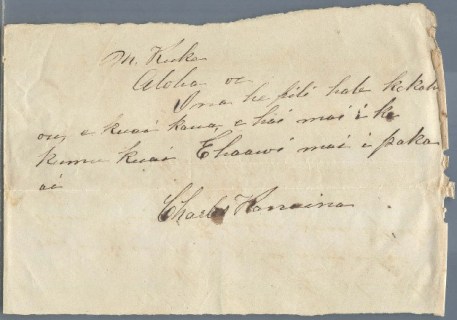 M. Keeka
Aloha oe
Ina he pili hale kekah
oe, e kuai kaua, e hai mai i ke
kumu kuai E haawi mai i paka
ai
Charles Kanaina